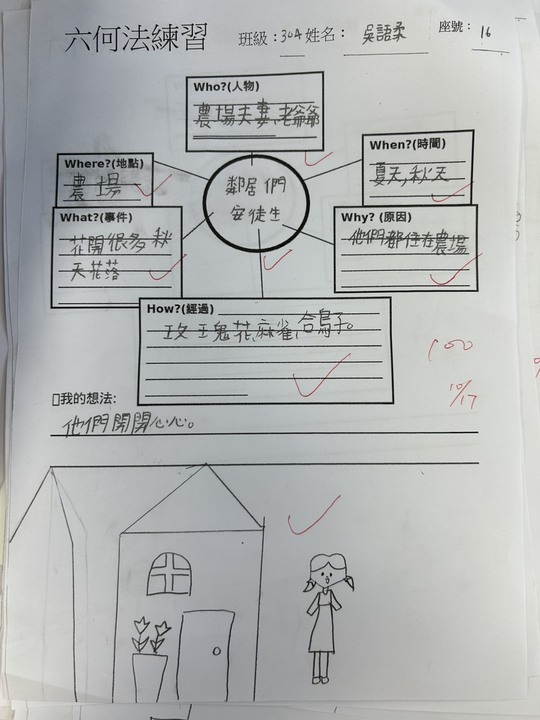 六何法練習
班級：304 姓名：吳語柔 座號：16
Who?(人物)
農場夫妻,老爺爺
When?(時間)
夏天,秋天
Where?(地點)
農場
鄰居們
安徒生
What?(事件)
花開很多 秋
天花落
Why? (原因)
他們都住在農場
How?(經過)
玫瑰花,麻雀,
100
10/17
▯我的想法:
他們開開心心。